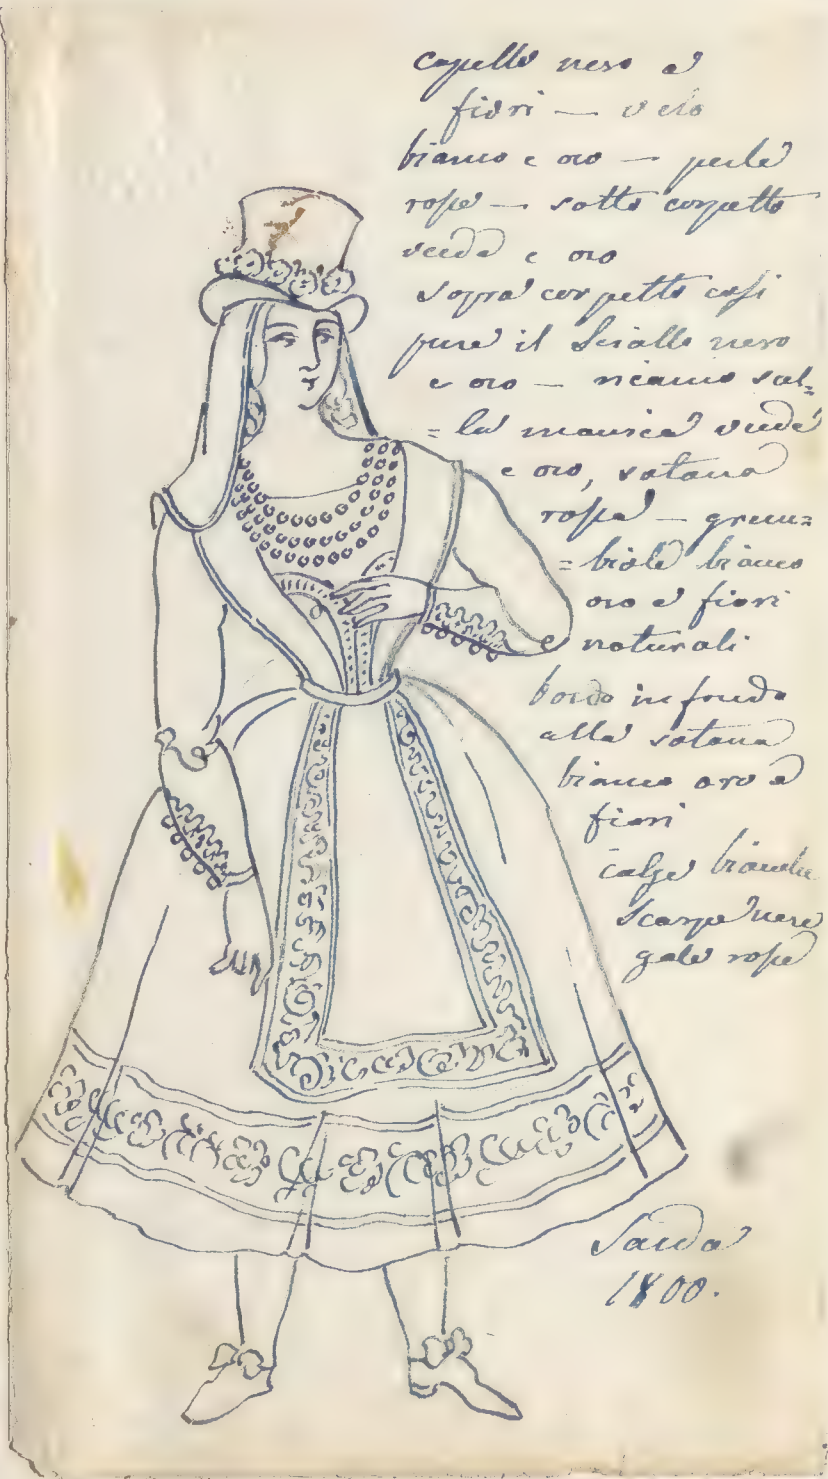 capello nero e
fiori — velo
bianco e oro — perle
rosse — sotto corpetto
verde e oro
sopra corpetto così
pure il scialle nero
e oro — ricamo sul-
=la manica verde
e oro, sotana
rossa — grem=
=biale bianco
oro e fiori
naturali
bordo in fondo
alla sotana
bianco oro e
fiori
calze bianche
scarpe nere
gale rosse
Sarda
1800.